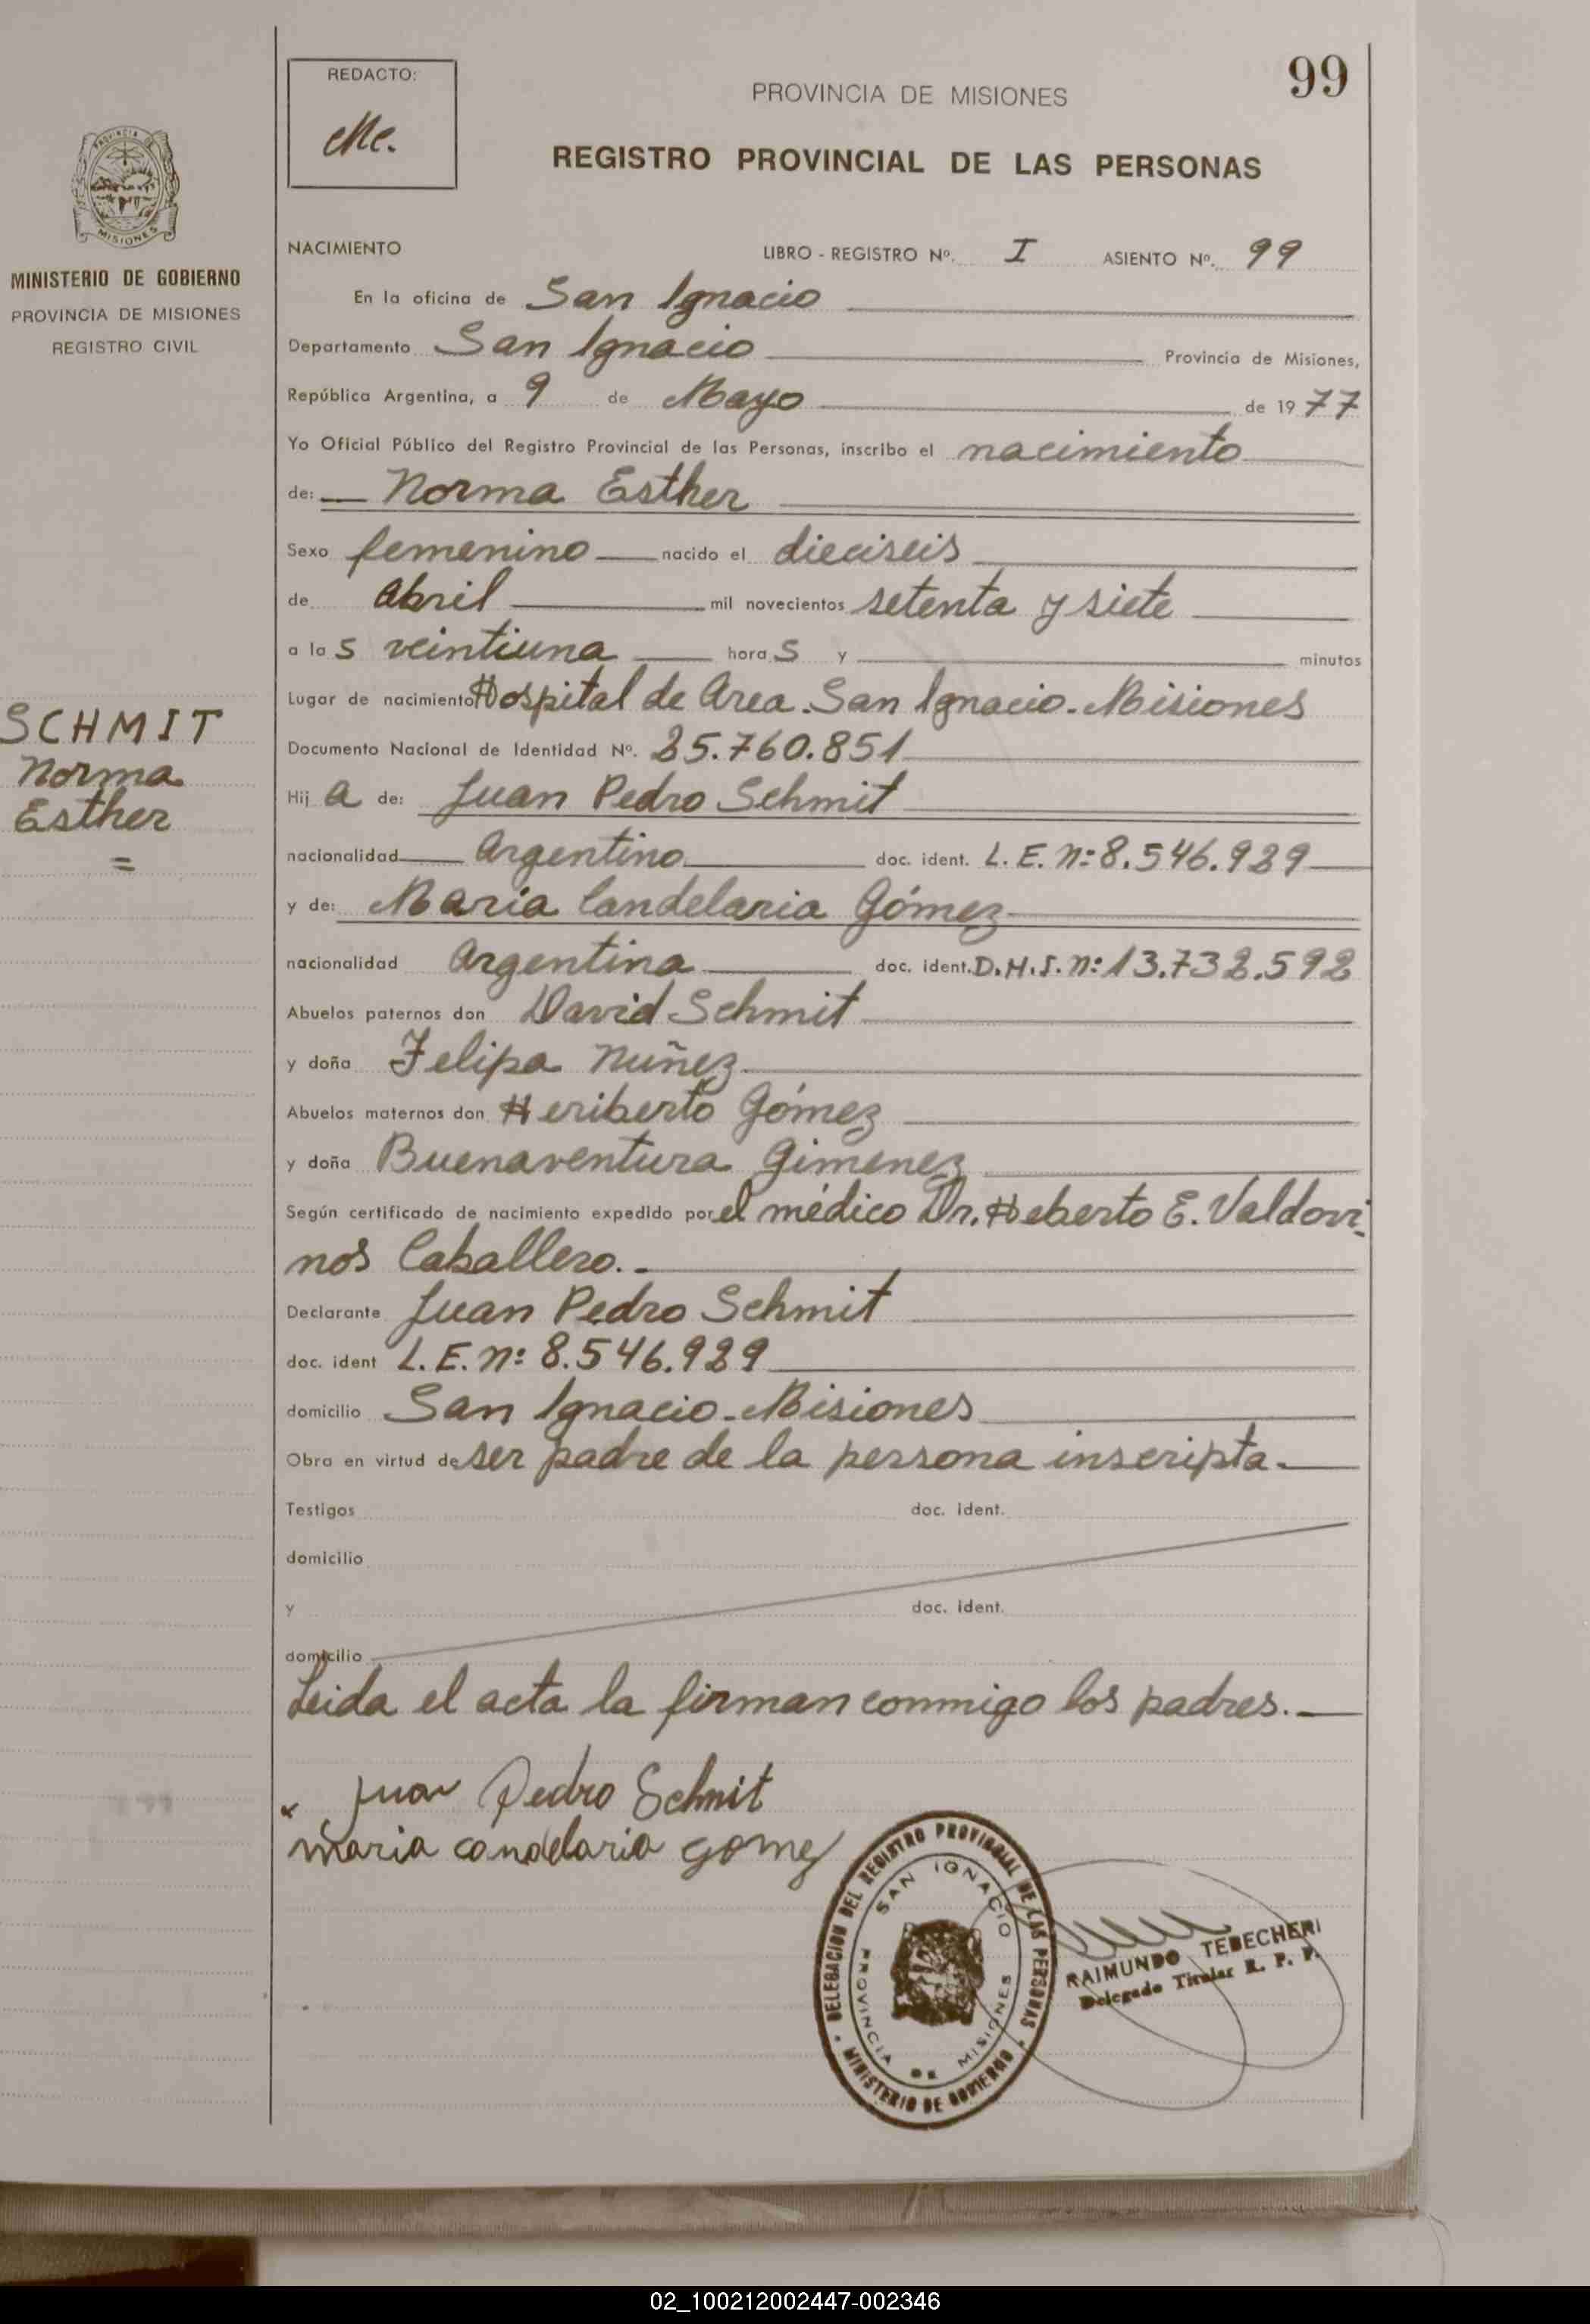 REDACTO:
Me.
99
PROVINCIA DE MISIONES
REGISTRO PROVINCIAL DE LAS PERSONAS
PROVINCIA DE
MISIONES
MINISTERIO DE GOBIERNO
PROVINCIA DE MISIONES
REGISTRO CIVIL
SCHMIT
Norma
Esther
=
NACIMIENTO LIBRO - REGISTRO Nº. I ASIENTO Nº. 99
En la oficina de San Ignacio
Departamento San Ignacio Provincia de Misiones,
República Argentina, a 9 de Mayo de 1977
Yo Oficial Público del Registro Provincial de las Personas, inscribo el nacimiento
de: Norma Esther
Sexo femenino nacido el dieciseis
de Abril mil novecientos setenta y siete
a las veintiuna horas y minutos
Lugar de nacimiento Hospital de Area. San Ignacio. Misiones
Documento Nacional de Identidad Nº. 25.760.851
Hija de: Juan Pedro Schmit
nacionalidad Argentino doc. ident. L.E. n: 8.546.929
y de: Maria Candelaria Gómez
nacionalidad Argentina doc. ident. D.N.I. n: 13.732.592
Abuelos paternos don David Schmit
y doña Felipa Nuñez
Abuelos maternos don Heriberto Gómez
y doña Buenaventura Gimenez
Según certificado de nacimiento expedido por el médico Dr. Heberto E. Valdovi-
nos Caballero.-
Declarante Juan Pedro Schmit
doc. ident L.E. n: 8.546.929
domicilio San Ignacio - Misiones
Obra en virtud de ser padre de la persona inscripta.
Testigos doc. ident.
domicilio
y doc. ident.
domicilio
Leida el acta la firman conmigo los padres.
Juan Pedro Schmit
maria candelaria gomez
DELEGACION DEL REGISTRO PROVINCIAL DE LAS PERSONAS
SAN IGNACIO
PROVINCIA DE MISIONES
MINISTERIO DE GOBIERNO
RAIMUNDO TEBECHERI
Delegado Titular R. P. P.
02_100212002447-002346